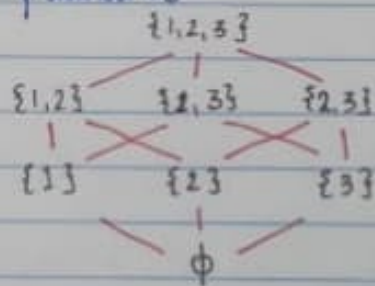 {1,2,3}
{1,2} {1,3} {2,3}
{1} {2} {3}
ϕ